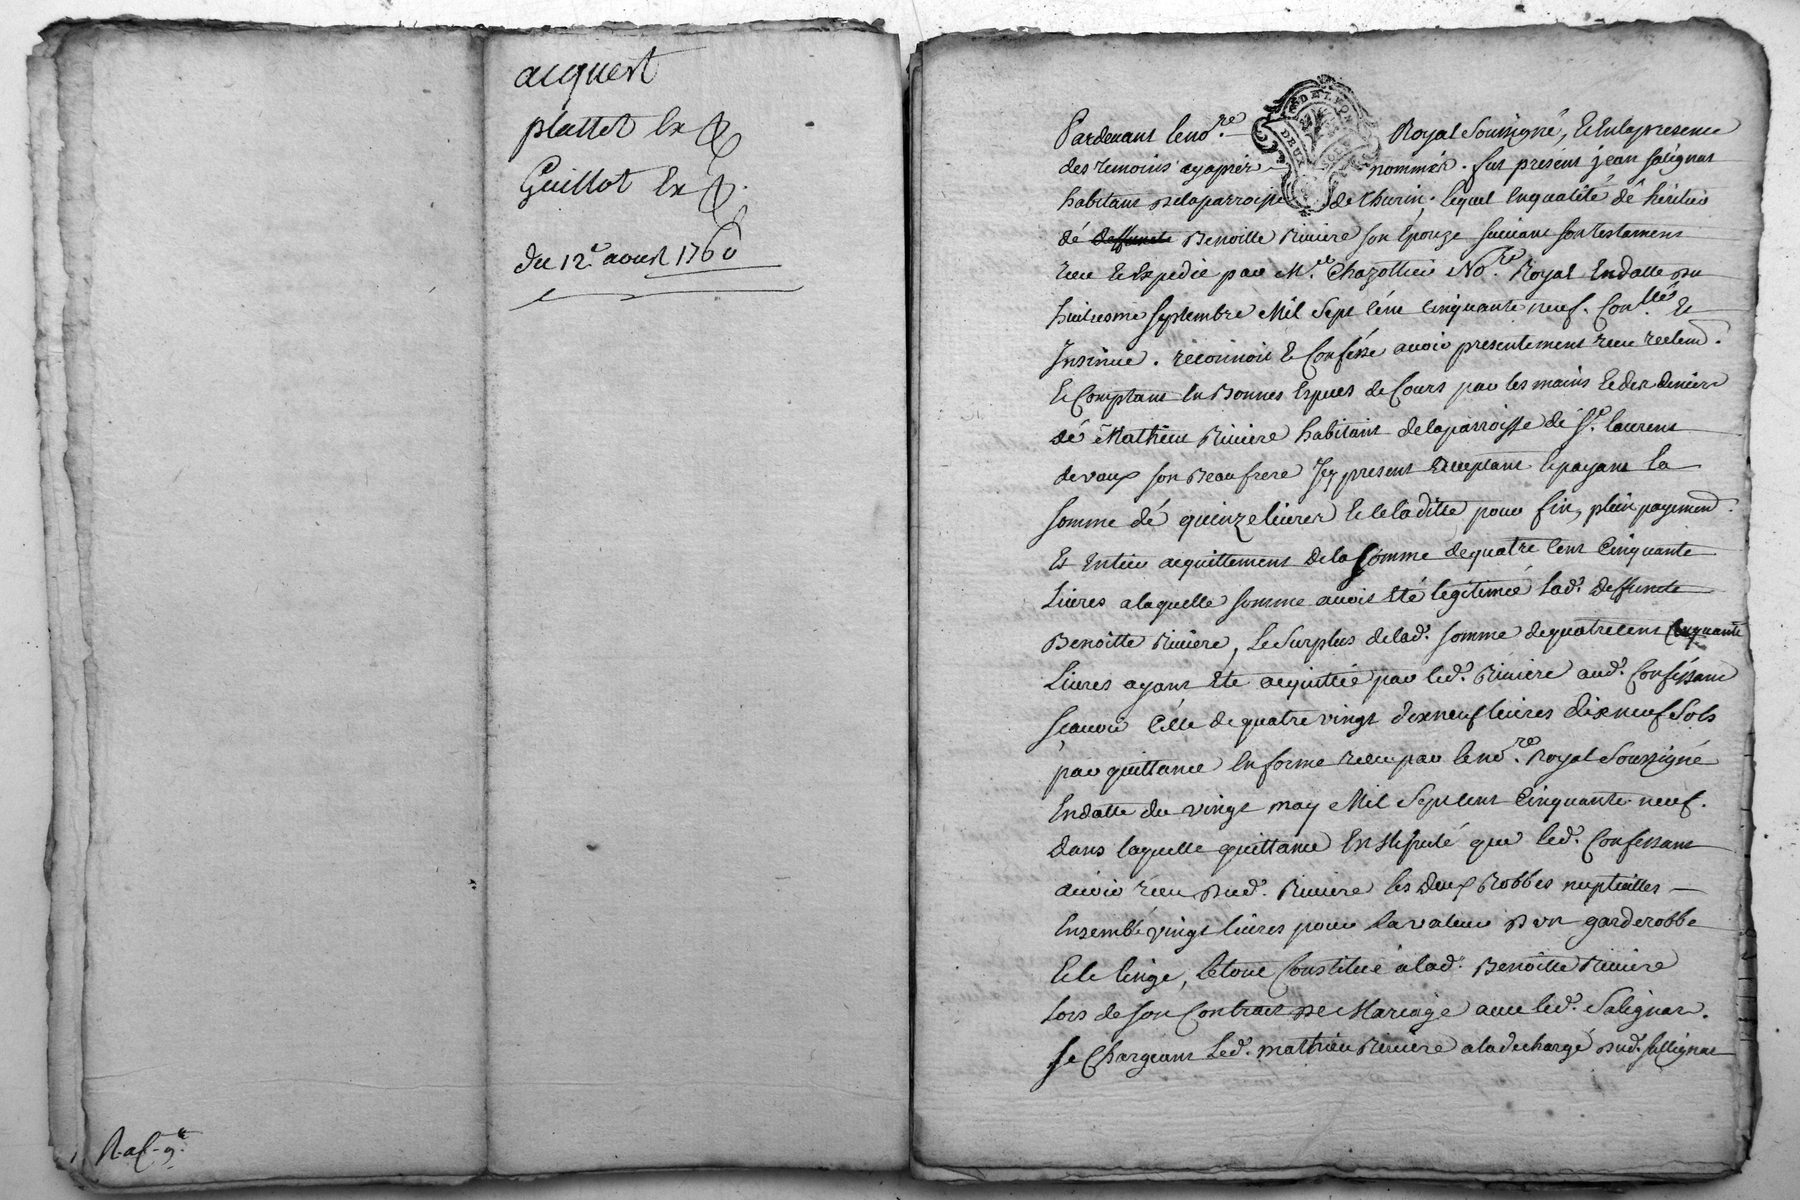 acquest
plattet Ex
Guillot Ex
du 12e aoust 1760
DE LYON
DEUX SOLS
Pardevant le no.re Royal Soussigné, Et En la presence
des temoins cy apres nommés. fut présent jean salignat
habitant de la parroisse de thurin. lequel En qualité dé héritier
dé deffuncte Benoitte Riviere son Epouze suivant son testament
receu Et Expedié par Me. Chazottier No.re Royal En datte du
huitiesme septembre Mil sept Cent Cinquante neuf. Con.llé Et
Insinué. reconnoit & Confésse avoir presentement receu reelem.t
Et Comptant En Bonnes Especes de Cours par les mains Et des deniers
dé Mathieu Riviere habitant de la parroisse dé St. laurent
de vaux son Beaufrere Icy present acceptant Et payant la
somme dé quinze livres Et Cela ditte pour fin, plein payement
Et Entier acquittement de la somme de quatre Cent Cinquante
Livres a laquelle somme avoit Eté legitimée lad. deffuncte
Benoitte Riviere, Le surplus de lad. somme de quatre cent Cinquante
Livres ayant Eté acquittée par led. Riviere aud. Conféssant
scavoir Célle de quatre vingt dixneuf livres dixneuf sols
par quittance En forme receu par le no.re Royal Soussigné
En datte du vingt may Mil Sept cent Cinquante neuf.
dans laquelle quittance Est stipulé que led. Confessant
avoir receu dud. Riviere les deux Robbes nuptialles
Ensemble vingt livres pour la valeur d'un garderobbe
Et le linge, le tout Constitué à lad. Benoitte Riviere
Lors de son Contract de Mariage avec led. Salignat.
se Chargeant Led. mathieu Riviere a la decharge dud. sallignat